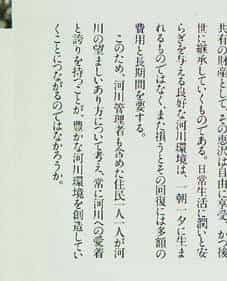 共有の財産として、その恵沢は自由に享受、かつ後
世に継承していくものである。日常生活に潤いと安
らぎを与える良好な河川環境は、一朝一夕に生ま
れるものではなく、また損うとその回復には多額の
費用と長期間を要する。
このため、河川管理者も含めた住民一人一人が河
川の望ましいあり方について考え、常に河川への愛着
と誇りを持つことが、豊かな河川環境を創造してい
くことにつながるのではなかろうか。